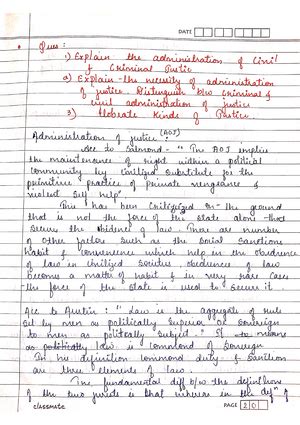 DATE
Ques :
1) Explain the administration of Civil
& Criminal Justic
2) Explain the necessity of administration
of justice. Distinguish b/w criminal &
civil administration of justice
3) Eloborate Kinds of Justice.
Administration of justice : (AOJ)
Acc to Salmond - " The AOJ implies
the maintenance of right within a political
community by civilized substitute for the
primitive practice of private vengeance &
violent self help"
This has been Critisized on the ground
that is not the force of the state alone that
secure the obidence of law. There are number
of other factors such as the social sanctions
habit & convenience which help in the obedience
of law in civilized societies obedience of law
becomes a matter of habit & in very rare cases
the force of the state is used to secure it.
Acc to Austin : " Law is the aggregate of rules
set by men as politically superior or sovereign
to men as politically subject." It means
as law is command of sovereign
In his definition command duty & sanction
are three elements of law.
The fundamental diff b/w the definitions
of the two jurists is that whereas in the defn of
classmate
PAGE 201